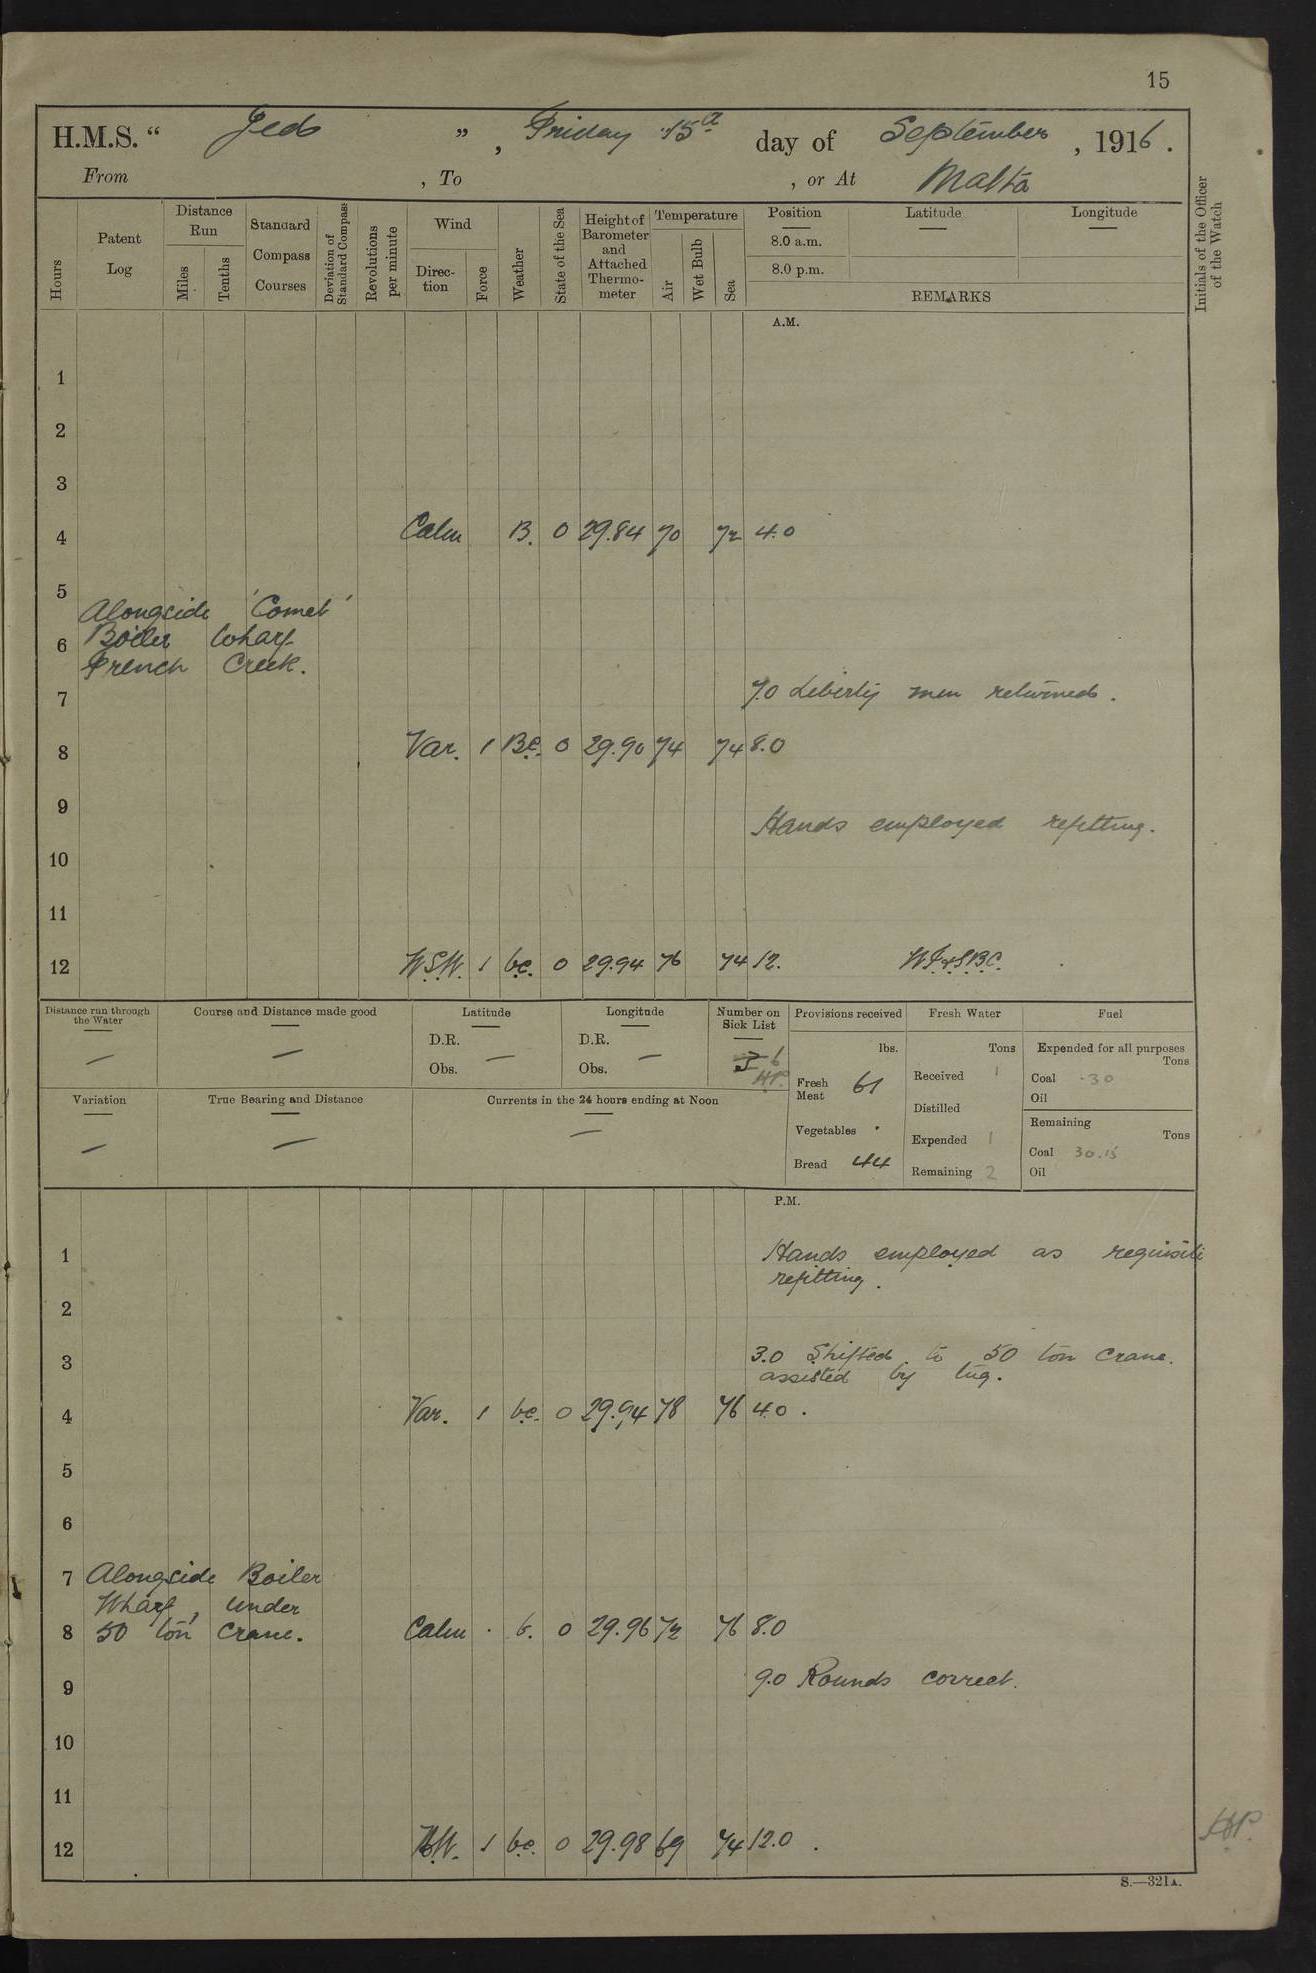 15
H.M.S. “ Jed ”, Friday 15th day of September, 1916.
From , To , or At Malta
Hours
Patent Log
Distance Run
Miles
Tenths
Standard Compass Courses
Deviation of Standard Compass
Revolutions per minute
Wind
Direc-tion
Force
Weather
State of the Sea
Height of Barometer and Attached Thermo-meter
Temperature
Air
Wet Bulb
Sea
Position Latitude Longitude
8.0 a.m.
8.0 p.m.
REMARKS
Initials of the Officer of the Watch
A.M.
1
2
3
4 Calm B. 0 29.84 70 72 4.0
5
Alongside 'Comet'
6 Boiler Wharf
French Creek.
7 7.0 Liberty men returned.
8 Var. 1 B.C. 0 29.90 74 74 8.0
9 Hands employed refitting.
10
11
12 W.S.W. 1 b.c. 0 29.94 76 74 12.
Distance run through the Water —
Course and Distance made good —
Latitude
D.R.
Obs. —
Longitude
D.R.
Obs. —
Number on Sick List
6
Provisions received
lbs.
Fresh Meat 61
Vegetables
Bread 44
Fresh Water
Tons
Received 1
Distilled
Expended 1
Remaining 2
Fuel
Expended for all purposes
Tons
Coal .30
Oil
Remaining
Tons
Coal 30.15
Oil
Variation —
True Bearing and Distance —
Currents in the 24 hours ending at Noon —
P.M.
1 Hands employed as requisite
refitting.
2
3 3.0 Shifted to 50 ton crane.
assisted by tug.
4 Var. 1 b.c. 0 29.94 78 76 4.0.
5
6
7 Alongside Boiler
Wharf, under
8 50 ton crane. Calm . b. 0 29.96 72 76 8.0
9 9.0 Rounds correct.
10
11
12 1 b.c. 0 29.98 69 74 12.0.
S.—321A.